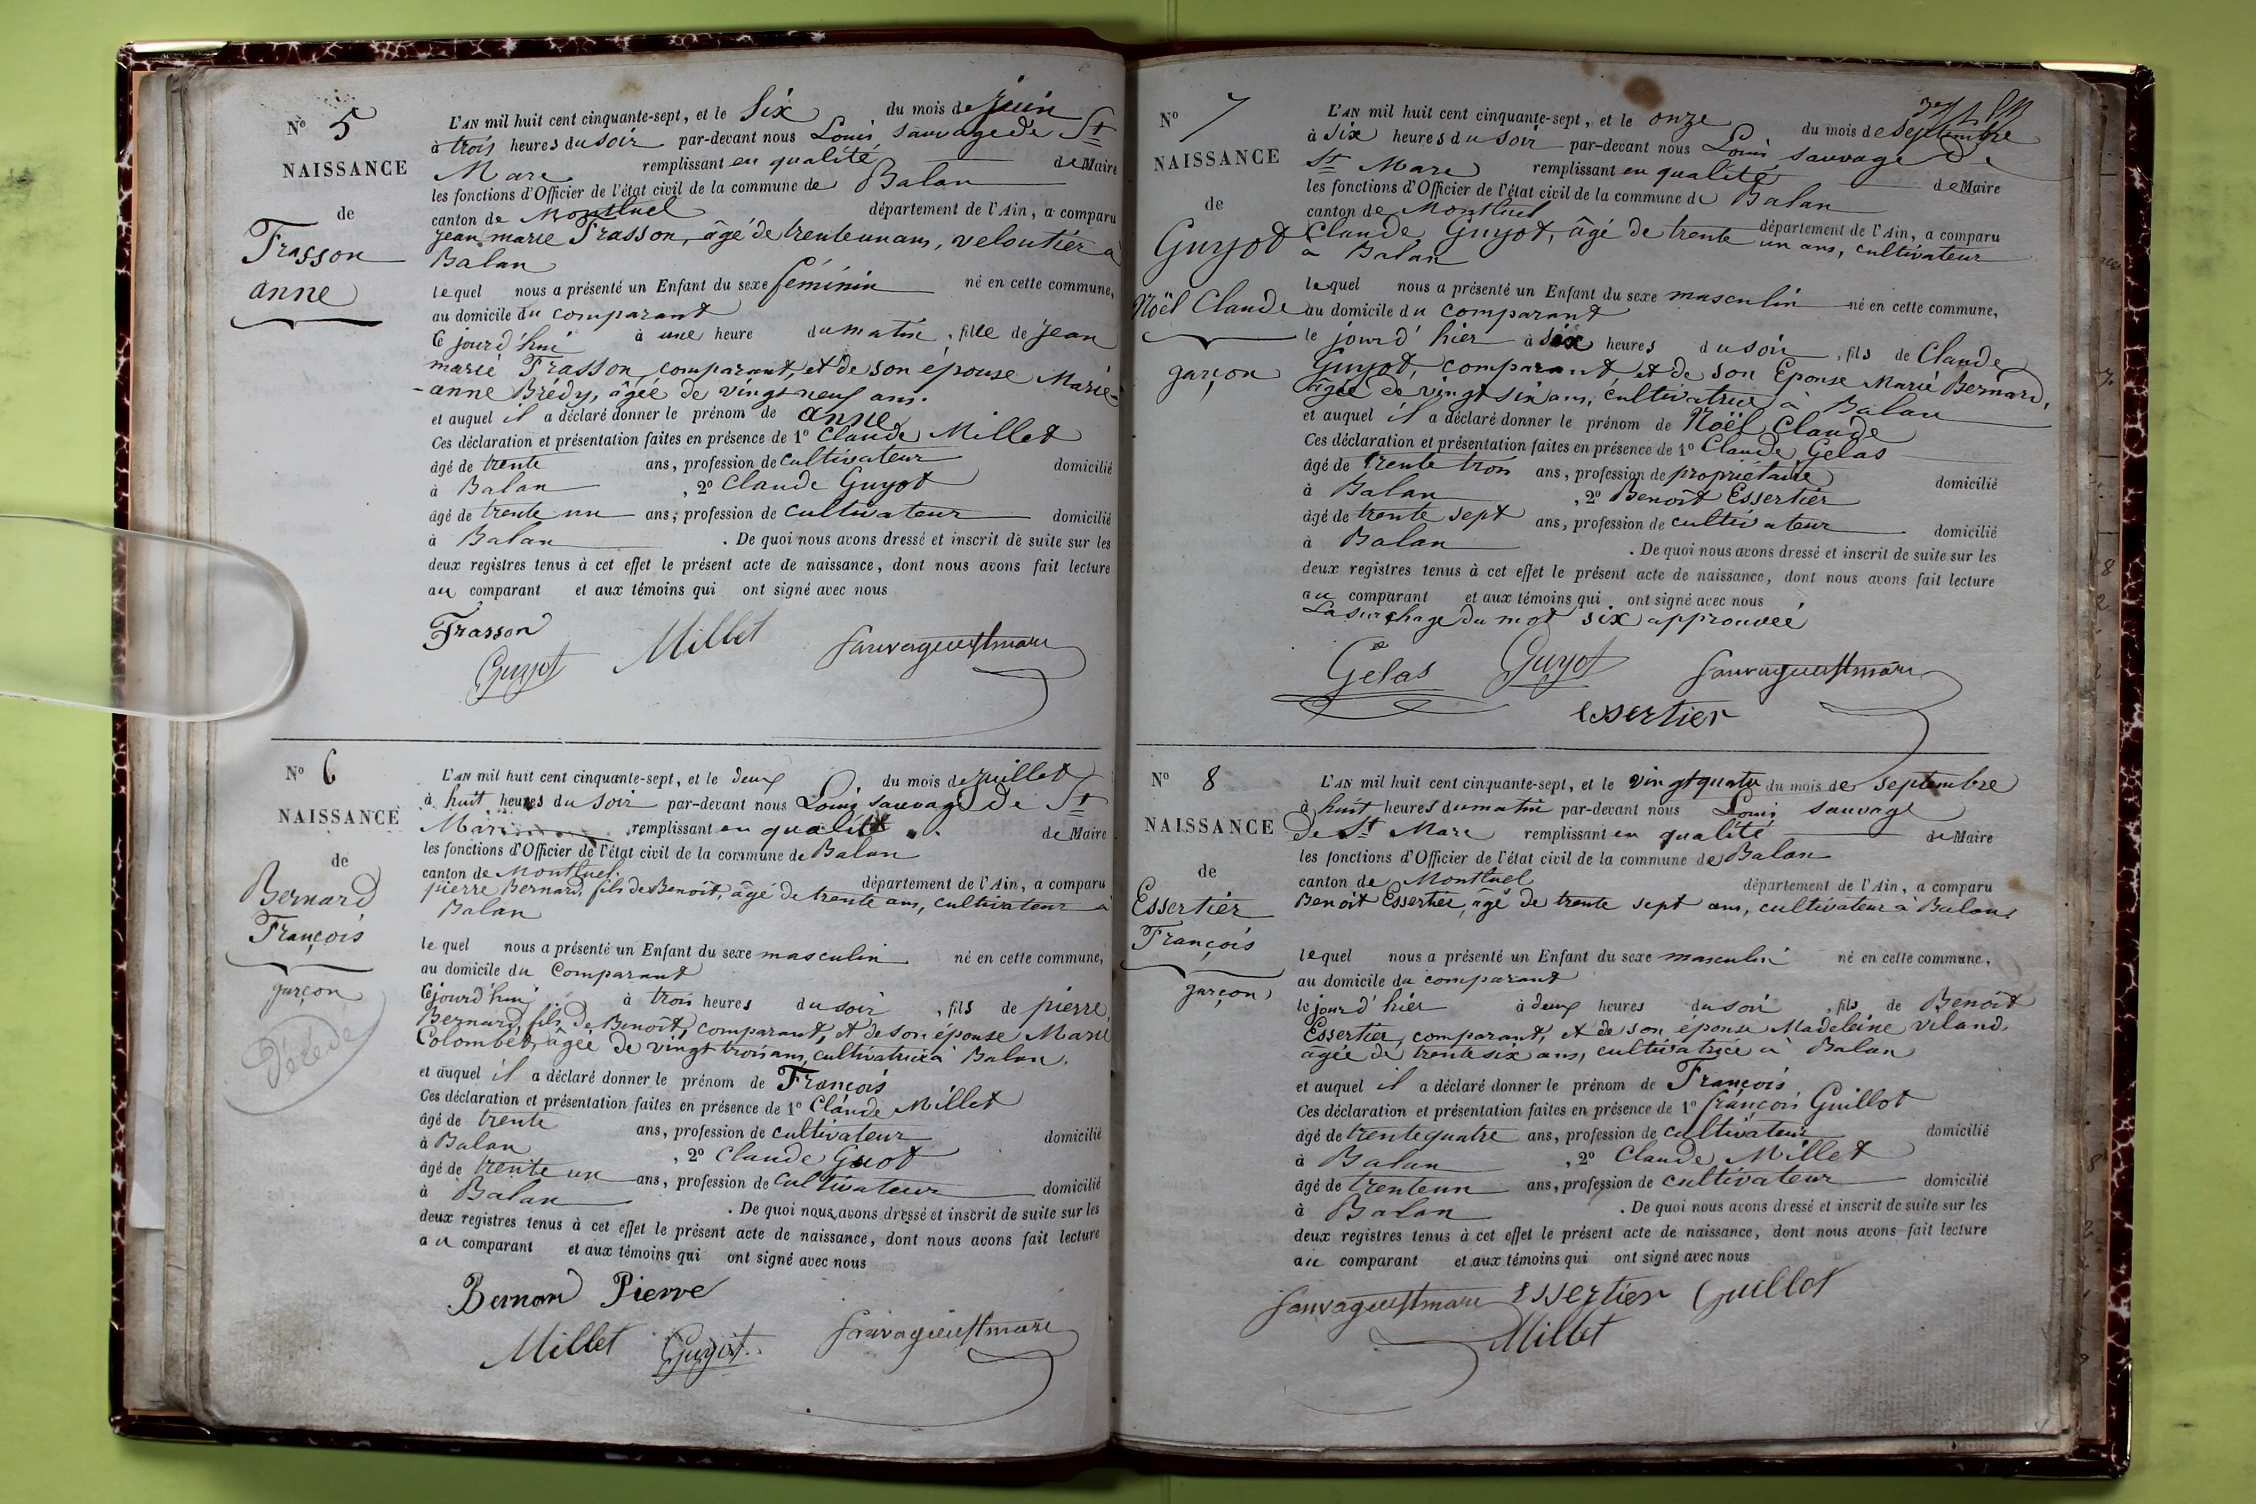 N° 5
NAISSANCE
de
Frasson
anne
L'AN mil huit cent cinquante-sept, et le Six du mois de Juin
à trois heures du soir par-devant nous Louis sauvage de St
Marc remplissant en qualité de Maire
les fonctions d'Officier de l'état civil de la commune de Balan
canton de Montluel département de l'Ain, a comparu
Jean marie Frasson, âgé de trente un ans, veloutier à
Balan
lequel nous a présenté un Enfant du sexe féminin né en cette commune,
au domicile du comparant
ce jourd'hui à une heure du matin, fille de Jean
marie Frasson, comparant, et de son épouse Marie-
-anne Brédy, âgée de vingt neuf ans.
et auquel il a déclaré donner le prénom de anne
Ces déclaration et présentation faites en présence de 1° Claude Millet
âgé de trente ans, profession de cultivateur domicilié
à Balan, 2° Claude Guyot
âgé de trente un ans, profession de cultivateur domicilié
à Balan. De quoi nous avons dressé et inscrit de suite sur les
deux registres tenus à cet effet le présent acte de naissance, dont nous avons fait lecture
au comparant et aux témoins qui ont signé avec nous
Frasson
Guyot Millet Sauvage de St marc
N° 6
NAISSANCE
de
Bernard
François
garçon
Décédé
L'AN mil huit cent cinquante-sept, et le deux du mois de Juillet
à huit heures du soir par-devant nous Louis sauvage de St
Marc remplissant en qualité de Maire
les fonctions d'Officier de l'état civil de la commune de Balan
canton de Montluel département de l'Ain, a comparu
pierre Bernard, fils de Benoît, âgé de trente ans, cultivateur à
Balan
lequel nous a présenté un Enfant du sexe masculin né en cette commune,
au domicile du Comparant
cejourd'hui à trois heures du soir, fils de pierre
Bernard, fils de Benoît, comparant, et de son épouse Marie
Colombet, âgée de vingt trois ans, cultivatrice à Balan.
et auquel il a déclaré donner le prénom de François
Ces déclaration et présentation faites en présence de 1° Claude Millet
âgé de trente ans, profession de cultivateur domicilié
à Balan, 2° Claude Guot
âgé de trente un ans, profession de cultivateur domicilié
à Balan. De quoi nous avons dressé et inscrit de suite sur les
deux registres tenus à cet effet le présent acte de naissance, dont nous avons fait lecture
au comparant et aux témoins qui ont signé avec nous
Bernard Pierre
Millet Guyot Sauvage de St marc
N° 7
NAISSANCE
de
Guyot
Noël Claude
garçon
L'AN mil huit cent cinquante-sept, et le onze du mois de Septembre
à six heures du soir par-devant nous Louis sauvage de
St Marc remplissant en qualité de Maire
les fonctions d'Officier de l'état civil de la commune de Balan
canton de Montluel département de l'Ain, a comparu
Claude Guyot, âgé de trente un ans, cultivateur
à Balan
lequel nous a présenté un Enfant du sexe masculin né en cette commune,
au domicile du comparant
le jour d'hier à six heures du soir, fils de Claude
Guyot, comparant et de son Epouse Marie Bernard,
âgée de vingt six ans, cultivatrice à Balan
et auquel il a déclaré donner le prénom de Noël Claude
Ces déclaration et présentation faites en présence de 1° Claude Gelas
âgé de trente trois ans, profession de propriétaire domicilié
à Balan, 2° Benoît Essertier
âgé de trente sept ans, profession de cultivateur domicilié
à Balan. De quoi nous avons dressé et inscrit de suite sur les
deux registres tenus à cet effet le présent acte de naissance, dont nous avons fait lecture
au comparant et aux témoins qui ont signé avec nous
La surchage du mot six approuvée
Gelas Guyot Sauvage de St marc
essertier
N° 8
NAISSANCE
de
Essertier
François
garçon
L'AN mil huit cent cinquante-sept, et le vingt quatre du mois de septembre
à huit heures du matin par-devant nous Louis sauvage
de St Marc remplissant en qualité de Maire
les fonctions d'Officier de l'état civil de la commune de Balan
canton de Montluel département de l'Ain, a comparu
Benoît Essertier, âgé de trente sept ans, cultivateur à Balan
lequel nous a présenté un Enfant du sexe masculin né en cette commune,
au domicile du comparant
le jour d'hier à deux heures du soir, fils de Benoît
Essertier, comparant, et de son épouse Madeleine Viland,
âgée de trente six ans, cultivatrice à Balan
et auquel il a déclaré donner le prénom de François
Ces déclaration et présentation faites en présence de 1° françois Guillot
âgé de trente quatre ans, profession de cultivateur domicilié
à Balan, 2° Claude Millet
âgé de trente un ans, profession de cultivateur domicilié
à Balan. De quoi nous avons dressé et inscrit de suite sur les
deux registres tenus à cet effet le présent acte de naissance, dont nous avons fait lecture
au comparant et aux témoins qui ont signé avec nous
Sauvage de St marc essertier Guillot
Millet